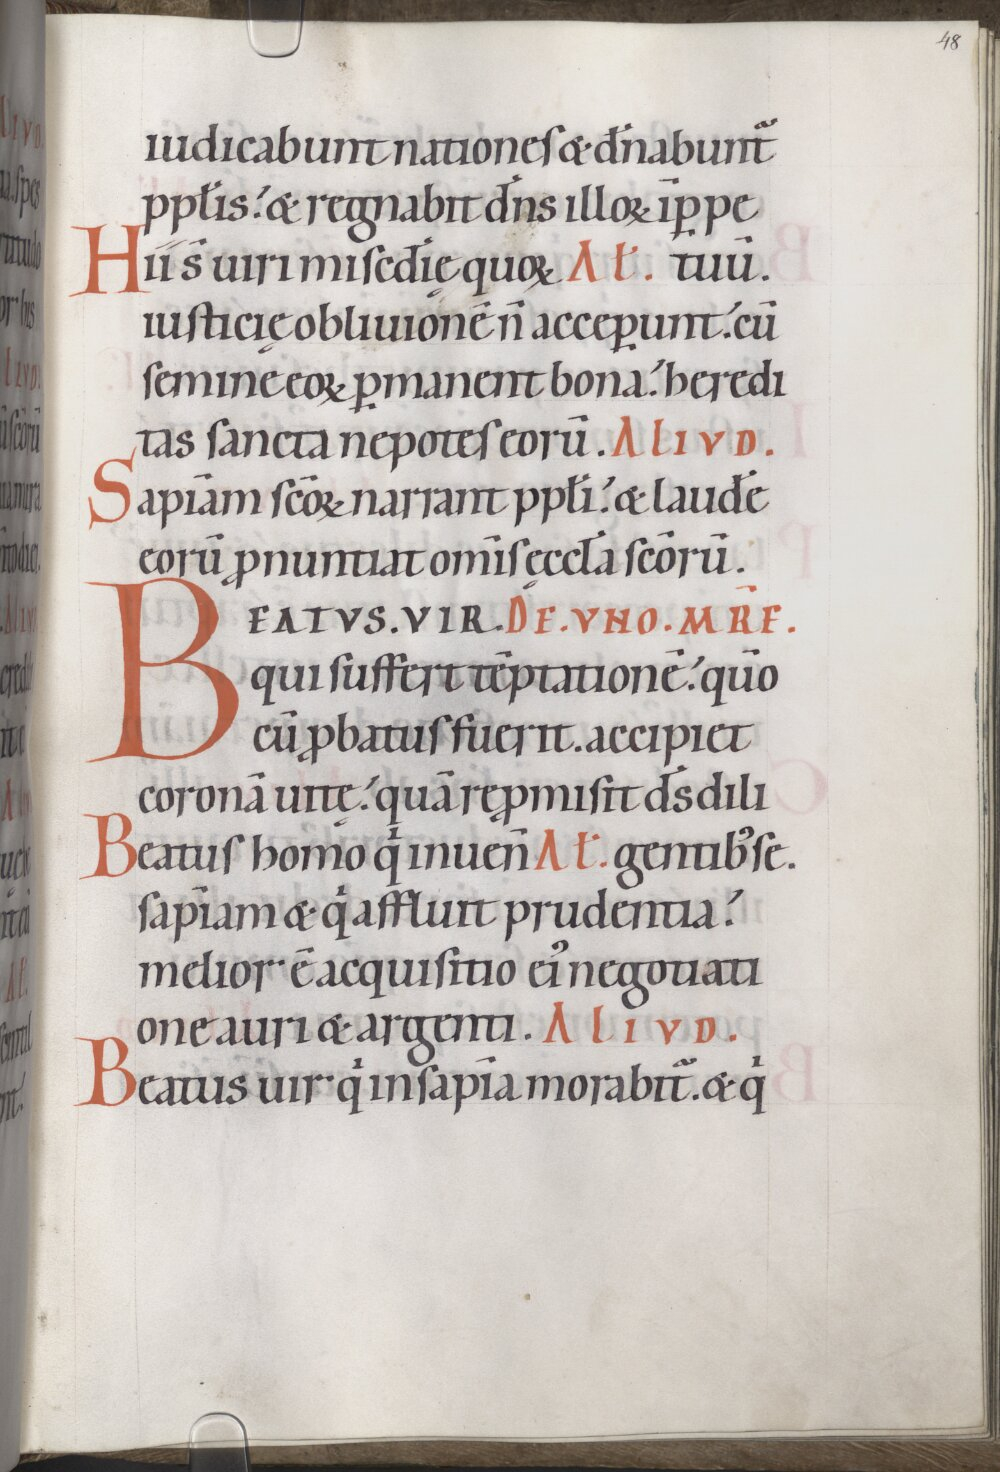 48
iudicabunt nationes & dn̄abunt᷑
ppłis: & regnabit dn̄s illoꝝ ip̄ ꝑpe
Hii s̄ uiri misc̄dię quoꝝ Ał. tuū.
iusticię obliuionē n̄ acceperunt: cū
semine eoꝝ ꝑmanent bona: heredi
tas sancta nepotes eorū. ALIVD.
Sapīam sc̄oꝝ narrant ppłi: & laudē
eorū ꝓnuntiat omīs ęccła sc̄orū.
BEATVS.VIR. DE.VNO.MR̄E.
qui suffert tēptationē: qūo
cū ꝓbatus fuerit. accipiet
coronā uitę: quā reꝓmisit ds̄ dili
Beatus homo qͥ inueñ Ał. gentibꝰ se.
sapīam & qͥ affluit prudentia:
melior ē acquisitio eiꝰ negotiati
one auri & argenti. ALIVD.
Beatus uir qͥ in sapīa morabit᷑. & qͥ